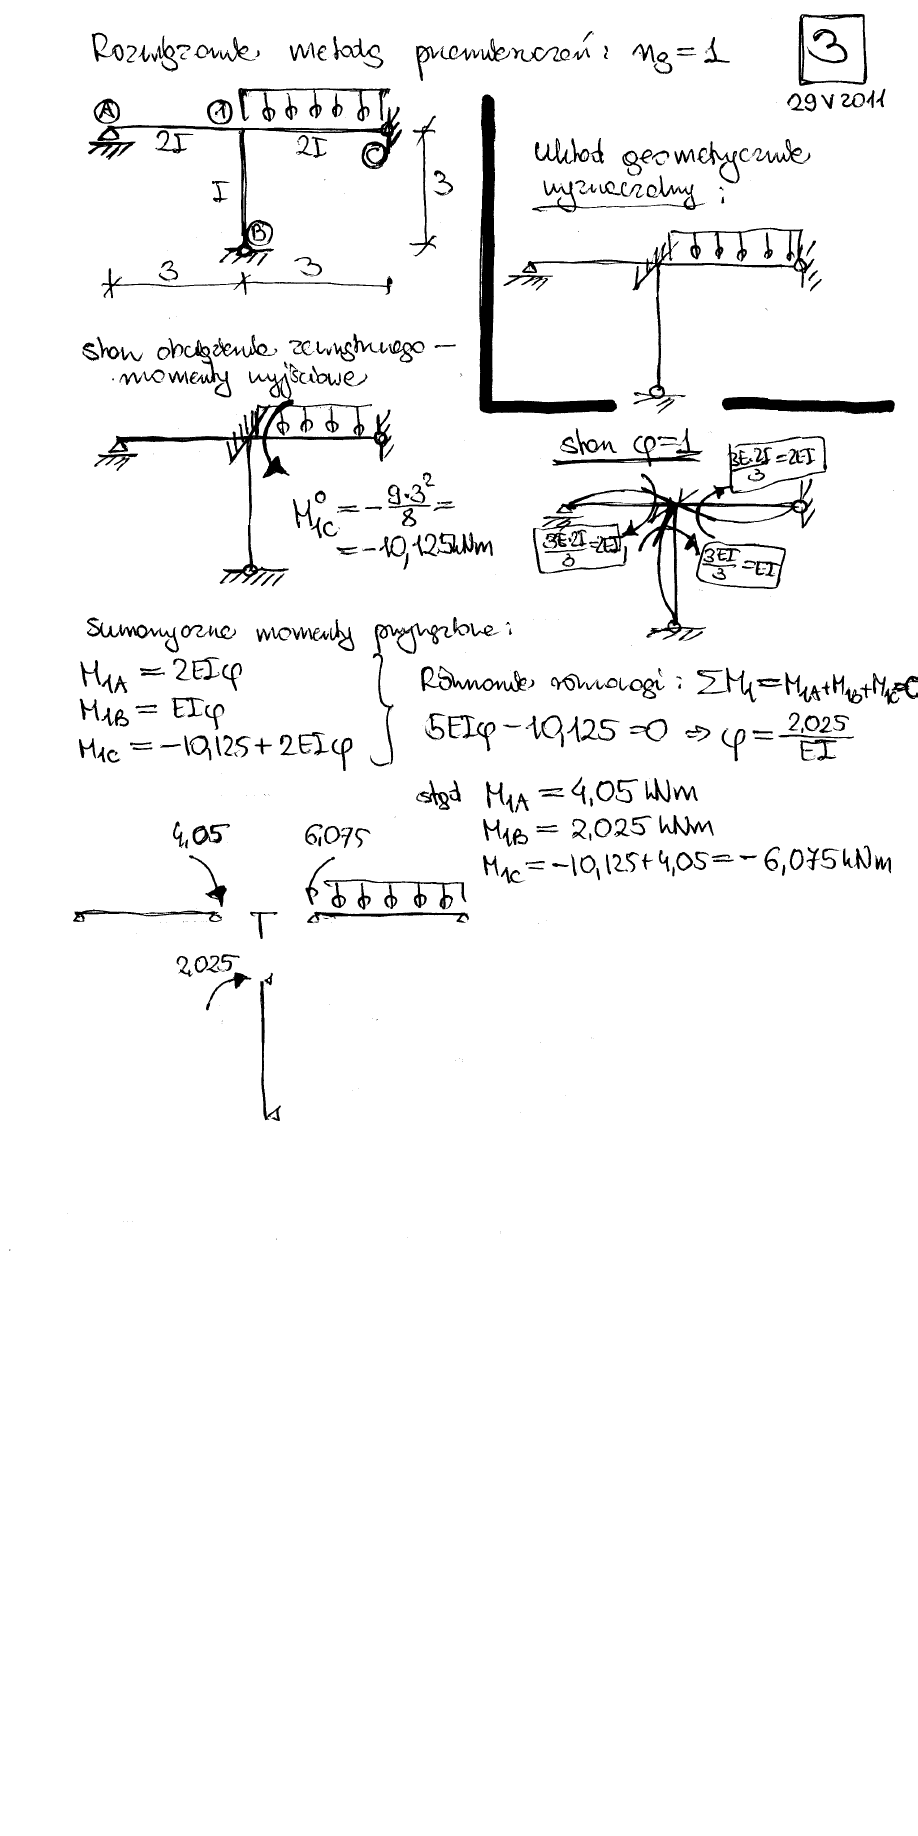 Rozwiązanie metodą przemieszczeń: ng = 1
3
29 V 2011
A 1
2I 2I
C
I
3
B
3 3
Układ geometrycznie
wyznaczalny:
stan obciążenia zewnętrznego –
momenty wyjściowe
M°1C = - 9·3²/8 =
= -10,125 kNm
stan φ=1
3E·2I/3 = 2EI
3E·2I/3 = 2EI
3EI/3 = EI
Sumaryczne momenty przywęzłowe:
M1A = 2EIφ
M1B = EIφ
M1C = -10,125 + 2EIφ
Równanie równowagi: ΣM1 = M1A + M1B + M1C = 0
5EIφ - 10,125 = 0 ⇒ φ = 2,025/EI
stąd M1A = 4,05 kNm
M1B = 2,025 kNm
M1C = -10,125 + 4,05 = - 6,075 kNm
4,05 6,075
2,025